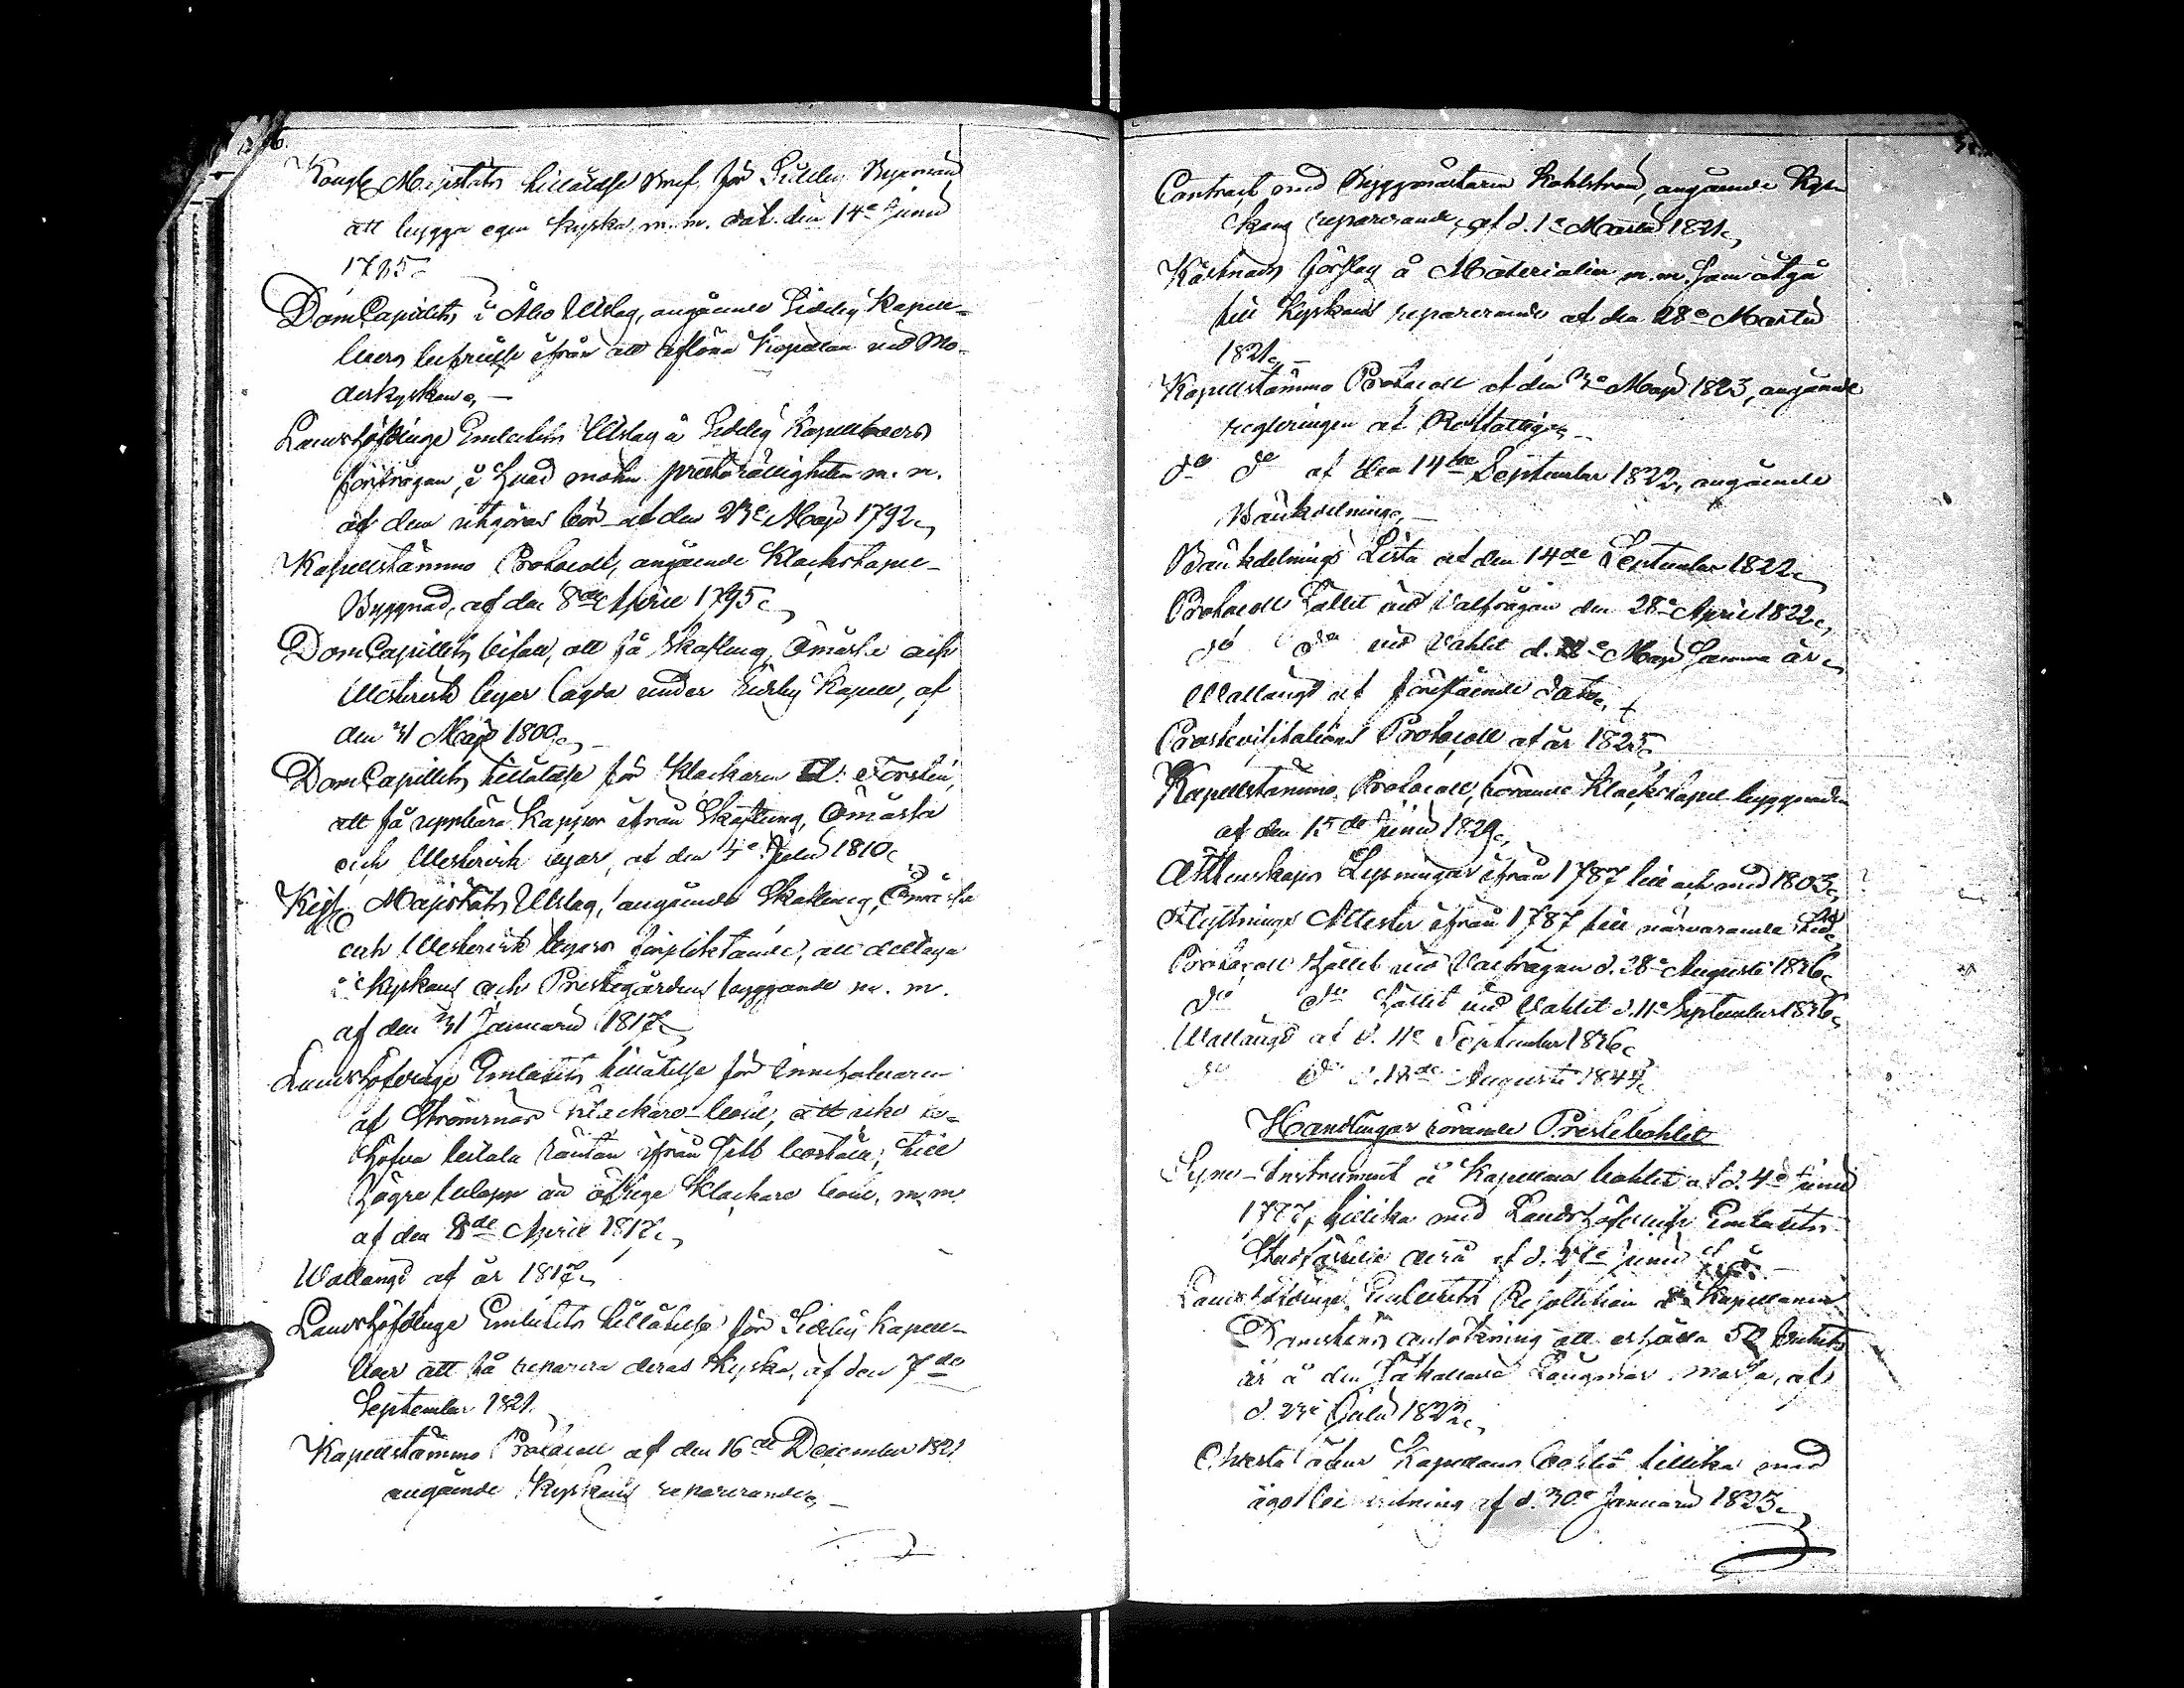 Kongl. Majestäts tillåtelse Bref, för Sideby Byemän
att bygga egen kyrka m. m. dat. den 14e Junii
1785.
DomCapitlets i Åbo Utslag, angående Sideby Kapell-
boers befrielse ifrån att aflöna Kapellan vid Mo-
derkyrkan.
Landshöfdinge Embetets Utslag å Sideby Kapellboers
förfrågan, i hvad mohn presträttigheten m. m.
af dem utgöras bör af den 23e Maji 1792.
Kapellstämmo Protocoll, angående Klockstapel-
Byggnad, af den 8de April 1795.
DomCapitlets bifall, att få Skaftung, Ömåssa och
Westervik byar lagda under Sideby Kapell, af
den 31 Maji 1809.
DomCapitlets tillåtelse för Klockaren Forslin,
att få uppbära Kappor ifrån Skaftung, Ömåssa
och Westervik byar, af den 4e Julii 1810.
Kejs. Majestäts Utslag, angående Skaftung, Ömåssa
och Westervik byars förpliktande, att deltaga
i kyrkans och Prestegårdens byggande m. m.
af den 31 Januarii 1817.
Landshöfdinge Embetets tillåtelse för Innehafvaren
af Klackars-bohl, att icke be-
höfva betala räntan ifrån sitt boställe, till
högre belopp än öfrige Klackars bohl, m. m.
af den 8de April 1817.
Wallängd af år 1817.
Landshöfdinge Embetets tillåtelse för Sideby Kapell-
boer att få reparera deras Kyrka, af den 7de
September 1821.
Kapellstämmo Protocoll af den 16de December 1821
angående Kyrkans reparerande,
Contract med Byggmästaren Kahlström, angående Kyr-
kans reparerande, af d. 1e Martii 1821.
Kostnads förslag å Materialier m. m. som åtgå
till Kyrkans reparerande af den 28e Martii
1821.
Kapellstämmo Protocoll af den 3e Maji 1823, angående
regleringen af Rosfattige.
do do af den 14de September 1822, angående
Bänkdelning,
Bänkdelnings Lista af den 14de September 1822.
Protocoll Hållit vid Valfrågan den 28e April 1822,
do do vid Vahlet d. Maji samma år.
Wallängd af föregående dato.
Prostevisitations Protocoll af år 1825.
Kapellstämmo Protocoll, rörande Klockstapel byggnaden
af den 15de Junii 1829.
Äktenskaps Lysningar ifrån 1787 till och med 1803.
Flyttnings Attester ifrån 1787 till närvarande tid,
Protocoll Hållit vid Valfrågan d. 28e Augusti 1836.
do do Hållit vid Vahlet d. 11e September 1836.
Wallängd af d. 11e September 1836.
do do d. 18de Augusti 1844.
Handlingar rörande Prestebohlet
Syne-Instrument å Kapellans bohlet af d. 4e Junii
1787, tillika med Landshöfdinge Embetets
Stadfästelse derå af d. 27e Junii
Landshöfdinge Embetets Resolution å Kapellanen
ansökning att erhålla 50 frihets
år å den så kallade Långmar mossa, af
d. 23e Julii 182
Charta öfver Kapellans bohlet tillika med
ägobeskrifning af d. 30e Januarii 1823.